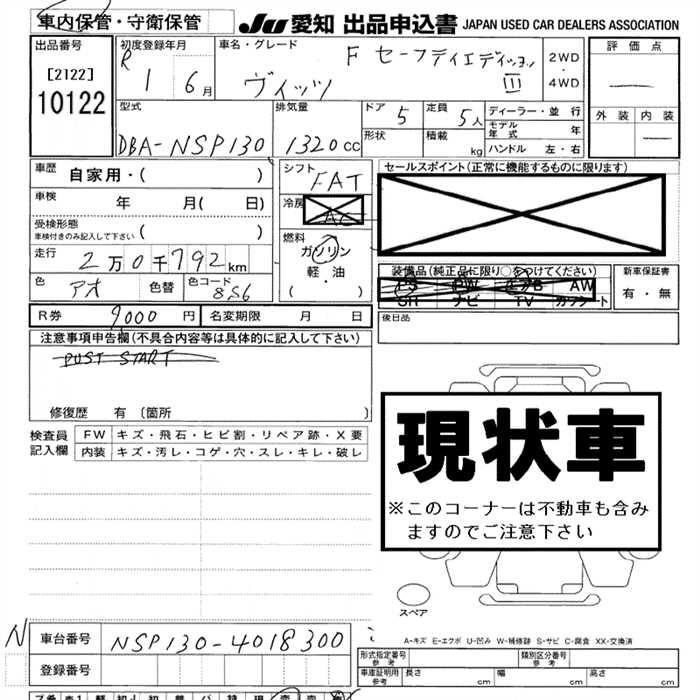 車内保管・守衛保管 JU 愛知 出品申込書 JAPAN USED CAR DEALERS ASSOCIATION
出品番号 [2122] 10122
初度登録年月 R 1 6月
車名・グレード ヴィッツ F セーフティエディション III
2WD ・ 4WD
評価点
外装 内装
型式 DBA-NSP130
排気量 1320cc
ドア 5 形状
定員 5人 積載 kg
ディーラー・並行
モデル年式 年
ハンドル 左・右
車歴 自家用・( )
車検 年 月( 日)
受検形態 車検付きのみ記入して下さい ( )
走行 2万0千792km
色 アオ 色替 色コード 8S6
シフト FAT
冷房 AC
燃料 ガソリン 軽・油 ( ・ )
セールスポイント(正常に機能するものに限ります)
装備品(純正品に限り○をつけてください)
PS PW エアB AW
SR ナビ TV カワシート
新車保証書 有・無
R券 9,000 円 名変期限 月 日
後日品
注意事項申告欄(不具合内容等は具体的に記入して下さい)
PUST START
修復歴 有 〔箇所 〕
検査員記入欄
FW キズ・飛石・ヒビ割・リペア跡・X要
内装 キズ・汚レ・コゲ・穴・スレ・キレ・破レ
現状車
※このコーナーは不動車も含み
ますのでご注意下さい
スペア
A-キズ E-エクボ U-凹み W-補修跡 S-サビ C-腐食 XX-交換済
N 車台番号 NSP130-4018300
登録番号
形式指定番号 参考 類別区分番号 参考
車庫証明用 参考 長さ cm 幅 cm 高さ cm